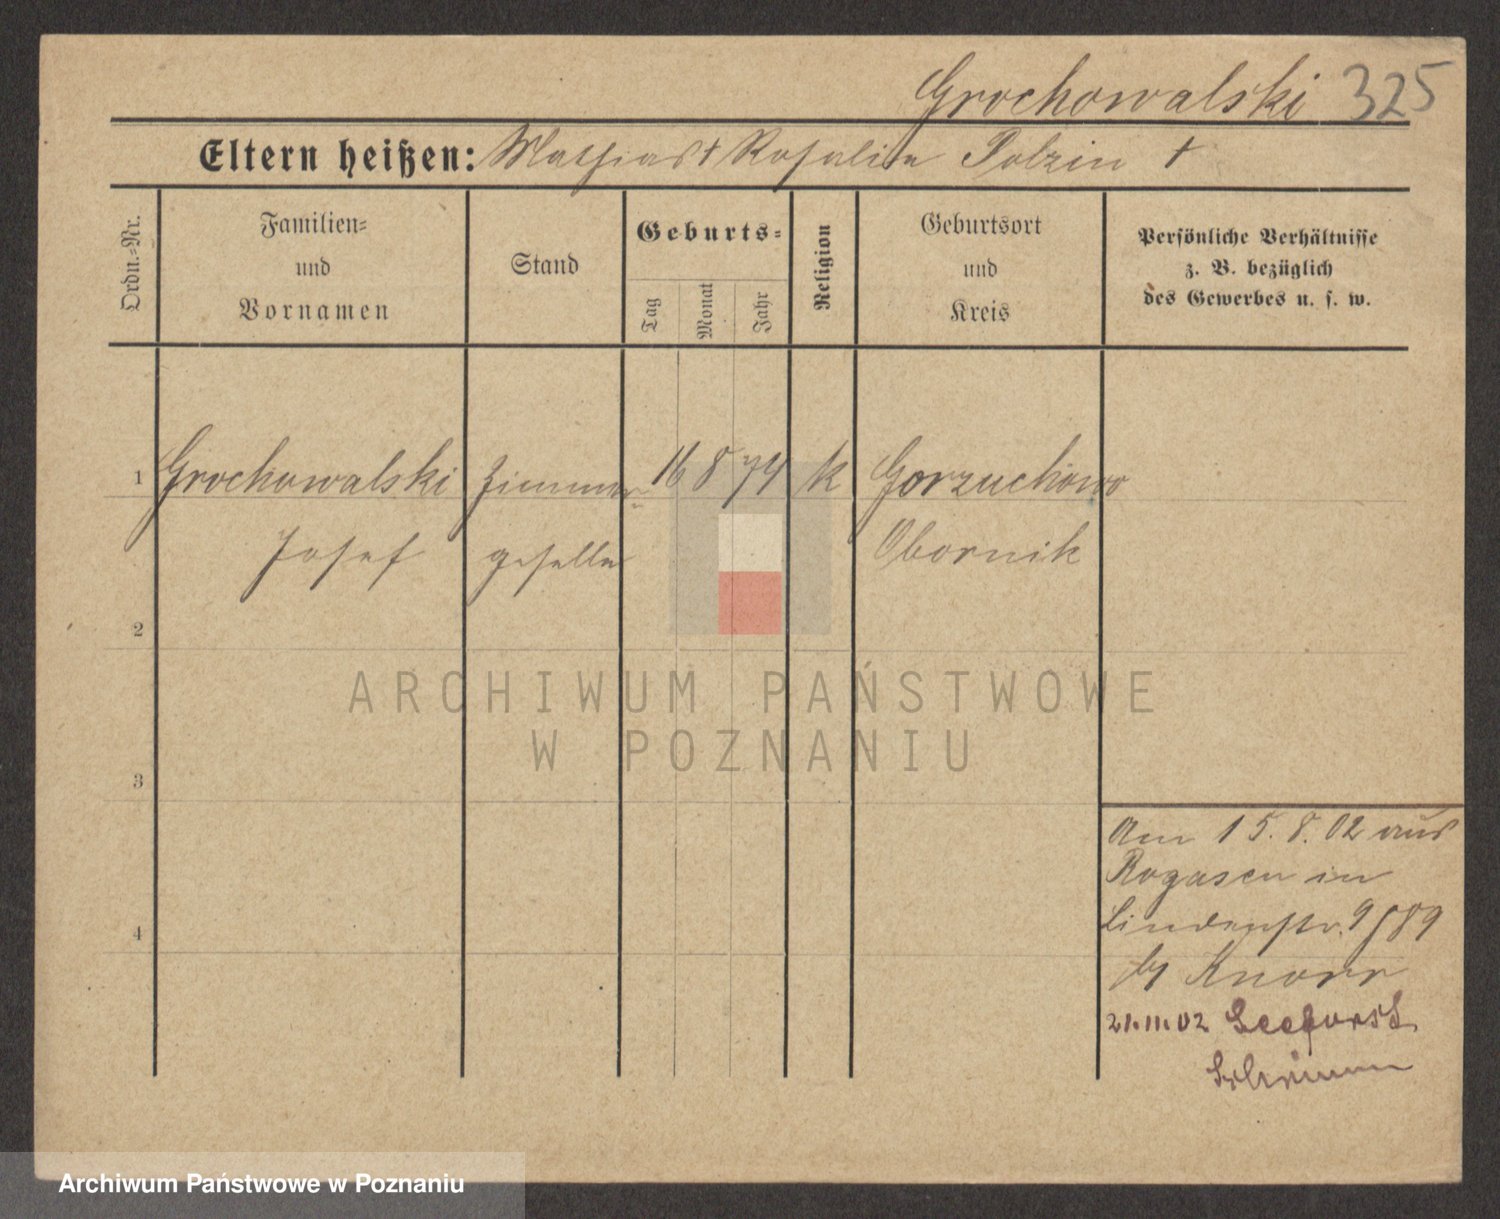 Grochowalski 325
Eltern heißen: Mathias † Rosalia Polzin †
Ordn.=Nr.
Familien=
und
Vornamen
Stand
Geburts=
Tag
Monat
Jahr
Religion
Geburtsort
und
Kreis
Persönliche Verhältnisse
z. B. bezüglich
des Gewerbes u. s. w.
1 Grochowalski Zimmer- 16 8 74 k Gorzuchowo
Josef geselle Obornik
2
ARCHIWUM PAŃSTWOWE
W POZNANIU
3
Am 15.8.02 aus
Rogasen in
Lindenstr. 9/89
4
by Knorr
21.11.02 Seeforst
Schrimm
Archiwum Państwowe w Poznaniu